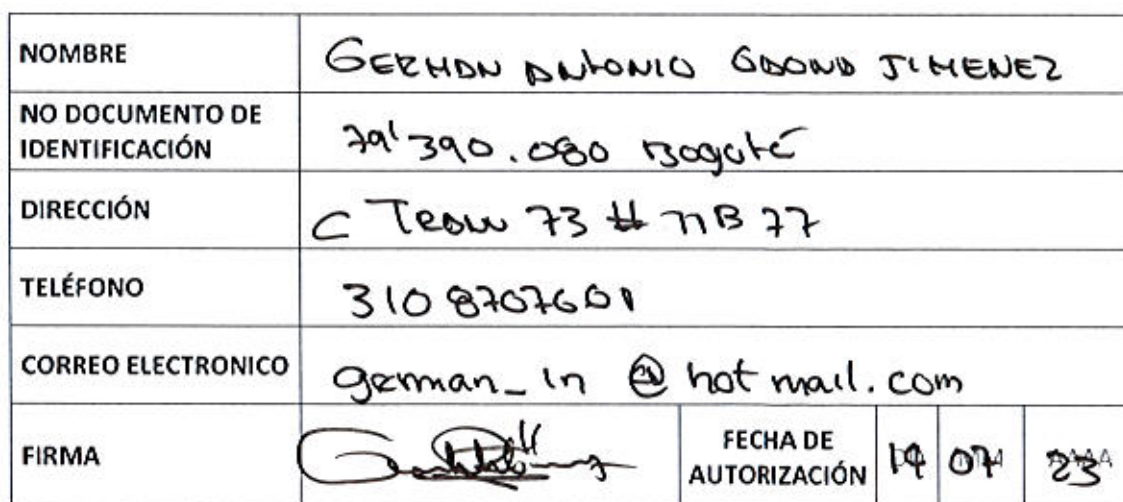 NOMBRE GERMAN ANTONIO GAONA JIMENEZ
NO DOCUMENTO DE
IDENTIFICACIÓN 79'390.080 Bogotá
DIRECCIÓN C Tranv 73 # 71B 77
TELÉFONO 310 8707601
CORREO ELECTRONICO german_in @ hotmail.com
FIRMA FECHA DE
AUTORIZACIÓN 19 07 23